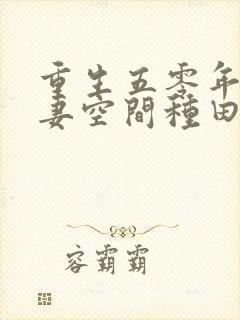 重生五零年
妻空間種田
容霸霸